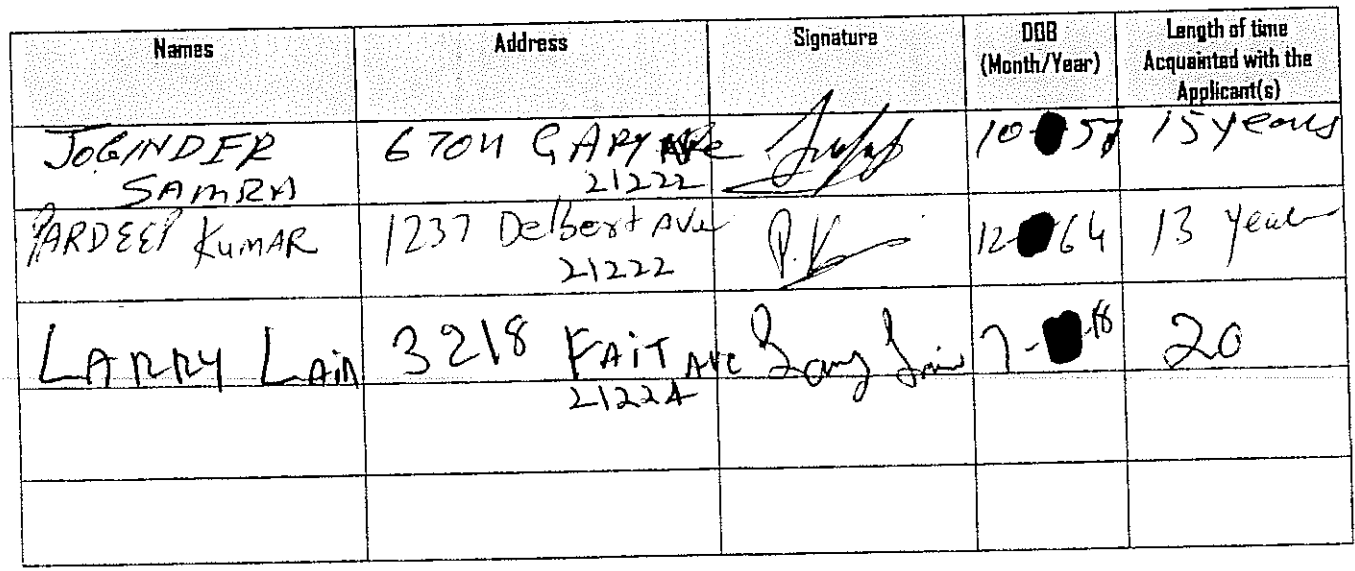 Names Address Signature DOB (Month/Year) Length of time Acquainted with the Applicant(s)
JOGINDER SAMRA 6704 GARY AVe 21222 10 57 15 years
PARDEEP KUMAR 1237 Delbert AVe 21222 P.K 12- 64 13 year
LARRY LAIR 3218 FAiT AVE 21224 7- 20